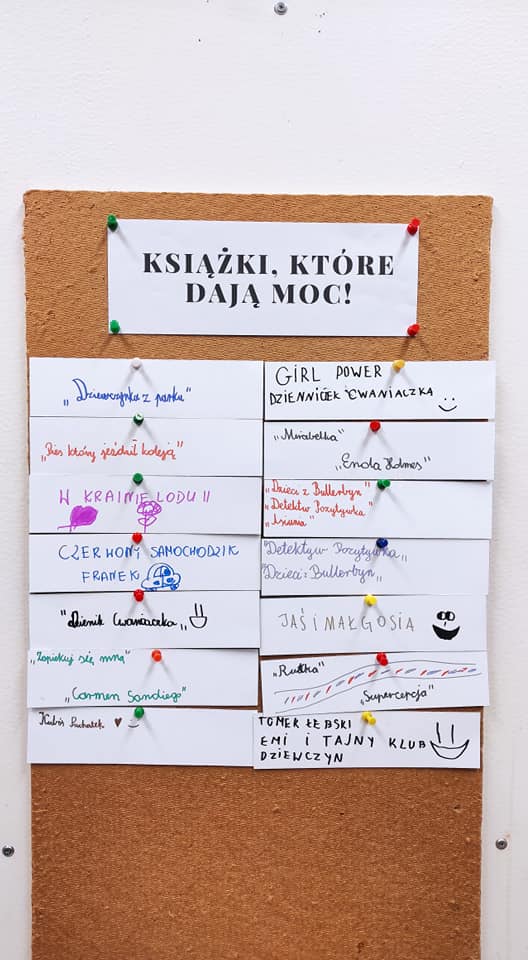 KSIĄŻKI, KTÓRE
DAJĄ MOC!
„Dziewczynka z parku"
„Pies który jeździł koleją"
W KRAINIE LODU II
CZERWONY SAMOCHODZIK
FRANEK
"Dziennik Cwaniaczka„
„Zaopiekuj się mną"
„Carmen Sandiego"
Kubuś Puchatek
GIRL POWER
DZIENNICEK CWANIACZKA
„Mirabelka"
„Enola Holmes"
„Dzieci z Bullerbyn"
„Detektyw Pozytywka"
"Detektyw Pozytywka„
"Dzieci z Bullerbyn„
JAŚ I MAŁGOSIA
„Rutka"
„Supercepcja"
TOMEK ŁEBSKI
EMI I TAJNY KLUB
DZIEWCZYN